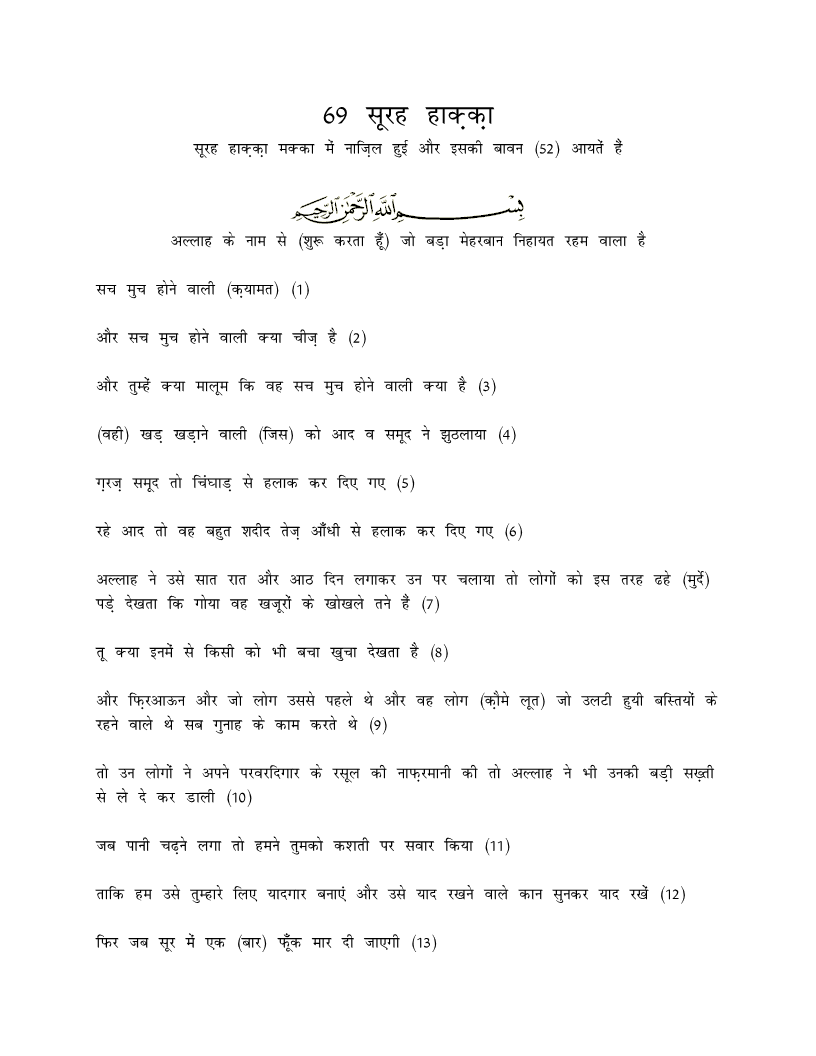 69 सूरह हाक़्क़ा
सूरह हाक़्क़ा मक्का में नाज़िल हुई और इसकी बावन (52) आयतें हैं
بِسْمِ اللَّهِ الرَّحْمَٰنِ الرَّحِيمِ
अल्लाह के नाम से (शुरू करता हूँ) जो बड़ा मेहरबान निहायत रहम वाला है
सच मुच होने वाली (क़यामत) (1)
और सच मुच होने वाली क्या चीज़ है (2)
और तुम्हें क्या मालूम कि वह सच मुच होने वाली क्या है (3)
(वही) खड़ खड़ाने वाली (जिस) को आद व समूद ने झुठलाया (4)
ग़रज़ समूद तो चिंघाड़ से हलाक कर दिए गए (5)
रहे आद तो वह बहुत शदीद तेज़ आँधी से हलाक कर दिए गए (6)
अल्लाह ने उसे सात रात और आठ दिन लगाकर उन पर चलाया तो लोगों को इस तरह ढहे (मुर्दे)
पड़े देखता कि गोया वह खजूरों के खोखले तने हैं (7)
तू क्या इनमें से किसी को भी बचा खुचा देखता है (8)
और फ़िरआऊन और जो लोग उससे पहले थे और वह लोग (क़ौमे लूत) जो उलटी हुयी बस्तियों के
रहने वाले थे सब गुनाह के काम करते थे (9)
तो उन लोगों ने अपने परवरदिगार के रसूल की नाफ़रमानी की तो अल्लाह ने भी उनकी बड़ी सख़्ती
से ले दे कर डाली (10)
जब पानी चढ़ने लगा तो हमने तुमको कशती पर सवार किया (11)
ताकि हम उसे तुम्हारे लिए यादगार बनाएं और उसे याद रखने वाले कान सुनकर याद रखें (12)
फिर जब सूर में एक (बार) फूँक मार दी जाएगी (13)